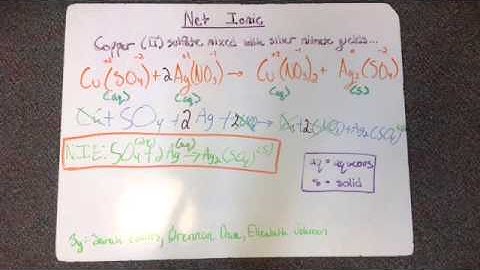 Net Ionic
Copper (II) sulfate mixed with silver nitrate yields...
+2 -2 +1 -1 +2 -1 +1 -2
Cu(SO4)+2Ag(NO3) → Cu(NO3)2 + Ag2(SO4)
(aq) (aq) (aq) (s)
Cu+SO4+2Ag+2 → + Ag2(SO4)
N.I.E: SO4(aq)+2Ag(aq)→Ag2(SO4)(s)
aq = aqueous
s = solid
By: Sarah Brennan Elizabeth